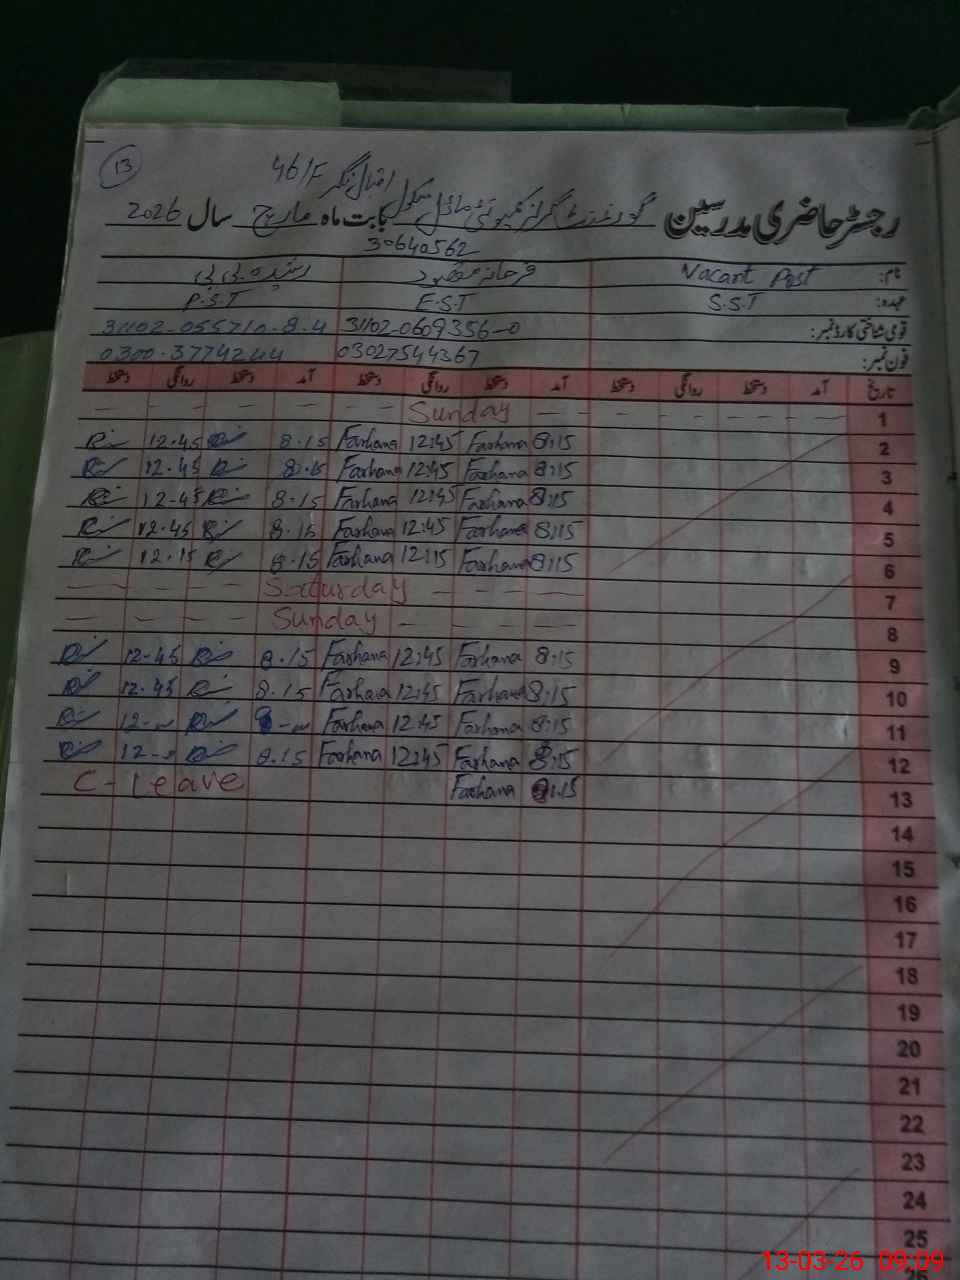 13
461/F اقبال نگر
رجسٹر حاضری مدرسین گورنمنٹ گرلز کمیونٹی ماڈل سکول بابت ماہ مارچ سال 2026
30640562
نام: Vacant Post فرحانہ مقصود رشیدہ بی بی
عہدہ: S.S.T E.S.T P.S.T
قومی شناختی کارڈ نمبر: 31102-0609356-0 31102-055710-8-4
فون نمبر: 03027544367 0300-3774244
تاریخ آمد دستخط روانگی دستخط آمد دستخط روانگی دستخط آمد دستخط روانگی دستخط
1 Sunday
2 8:15 Farhana 12:45 Farhana 8.15 12.45
3 8:15 Farhana 12:45 Farhana 8.15 12.45
4 8:15 Farhana 12:45 Farhana 8.15 12-45
5 8:15 Farhana 12:45 Farhana 8.15 12.45
6 8:15 Farhana 12:15 Farhana 8.15 12.15
7 Saturday
8 Sunday
9 8:15 Farhana 12:45 Farhana 8.15 12-45
10 8:15 Farhana 12:45 Farhana 8.15 12.45
11 8:15 Farhana 12:45 Farhana
12 8:15 Farhana 12:45 Farhana 8.15
13 8:15 Farhana C-Leave
14
15
16
17
18
19
20
21
22
23
24
25
13-03-26 09:09